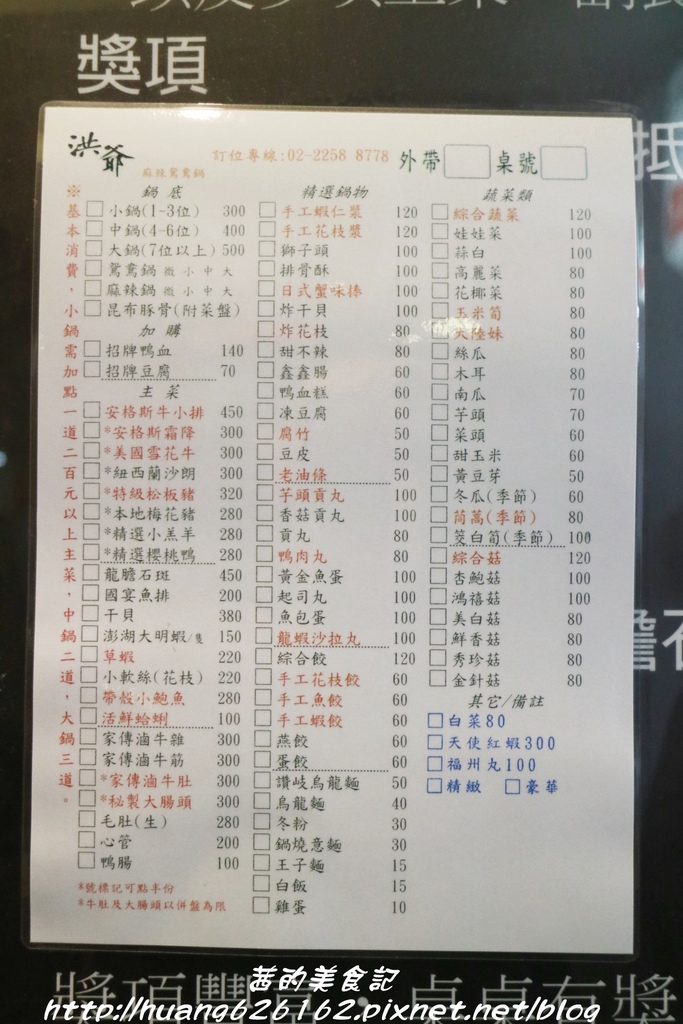 獎項
洪爺
麻辣鴛鴦鍋
訂位專線:02-2258 8778
外帶
桌號
※基本消費，小鍋需加點一道二百元以上主菜，中鍋二道，大鍋三道。
鍋底
小鍋(1-3位) 300
中鍋(4-6位) 400
大鍋(7位以上) 500
鴛鴦鍋 微 小 中 大
麻辣鍋 微 小 中 大
昆布豚骨(附菜盤)
加購
招牌鴨血 140
招牌豆腐 70
主菜
安格斯牛小排 450
*安格斯霜降 300
*美國雪花牛 300
*紐西蘭沙朗 300
*特級松板豬 320
*本地梅花豬 280
*精選小羔羊 280
*精選櫻桃鴨 280
龍膽石斑 450
國宴魚排 200
干貝 380
澎湖大明蝦/隻 150
草蝦 220
小軟絲(花枝) 220
帶殼小鮑魚 280
活鮮蛤蜊 100
家傳滷牛雜 300
家傳滷牛筋 300
*家傳滷牛肚 300
*秘製大腸頭 300
毛肚(生) 280
心管 200
鴨腸 100
*號標記可點半份
*牛肚及大腸頭以併盤為限
精選鍋物
手工蝦仁漿 120
手工花枝漿 120
獅子頭 100
排骨酥 100
日式蟹味捧 100
炸干貝 100
炸花枝 80
甜不辣 80
鑫鑫腸 60
鴨血糕 60
凍豆腐 60
腐竹 50
豆皮 50
老油條 50
芋頭貢丸 100
香菇貢丸 100
貢丸 80
鴨肉丸 80
黃金魚蛋 100
起司丸 100
魚包蛋 100
龍蝦沙拉丸 100
綜合餃 120
手工花枝餃 60
手工魚餃 60
手工蝦餃 60
燕餃 60
蛋餃 60
讚岐烏龍麵 50
烏龍麵 40
冬粉 30
鍋燒意麵 30
王子麵 15
白飯 15
雞蛋 10
蔬菜類
綜合蔬菜 120
娃娃菜 100
蒜白 100
高麗菜 80
花椰菜 80
玉米筍 80
大陸妹 80
絲瓜 80
木耳 80
南瓜 70
芋頭 70
菜頭 60
甜玉米 60
黃豆芽 50
冬瓜(季節) 60
茼蒿(季節) 80
茭白筍(季節) 100
綜合菇 120
杏鮑菇 100
鴻禧菇 100
美白菇 80
鮮香菇 80
秀珍菇 80
金針菇 80
其它/備註
白菜80
天使紅蝦300
福州丸100
精緻 豪華
抵
獎項豐富，桌桌有獎
茜的美食記
http://huang626162.pixnet.net/blog